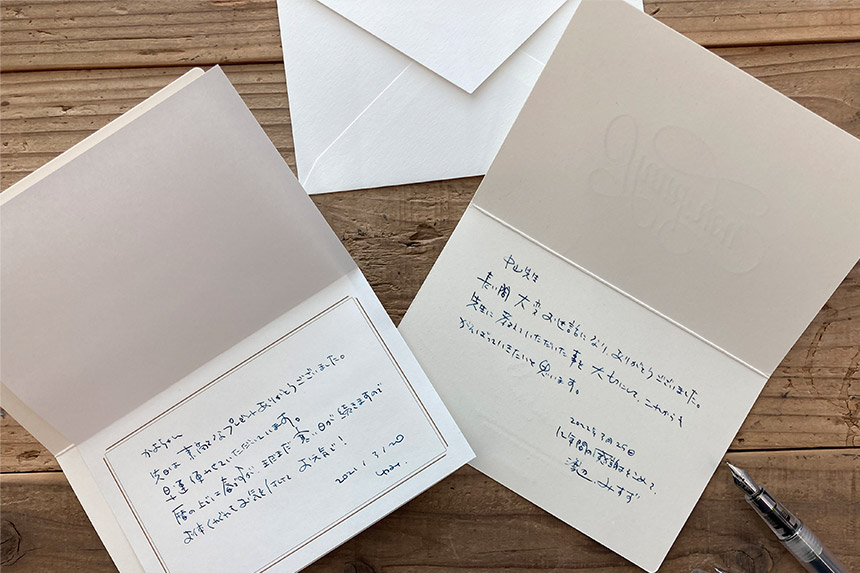 かよちゃん
先日は素敵なプレゼントありがとうございました。
早速使わせていただいています。
暦の上では春ですが、まだまだ寒い日が続きますので
お体くれぐれもお気をつけて お元気で!
2021.3.20
中山先生
長い間大変お世話になり、ありがとうございました。
先生に教えていただいた事を大切にして、これからも
がんばっていきたいと思います。
2022年3月25日
12年間の感謝をこめて。
渡辺 みすず
Thank you!